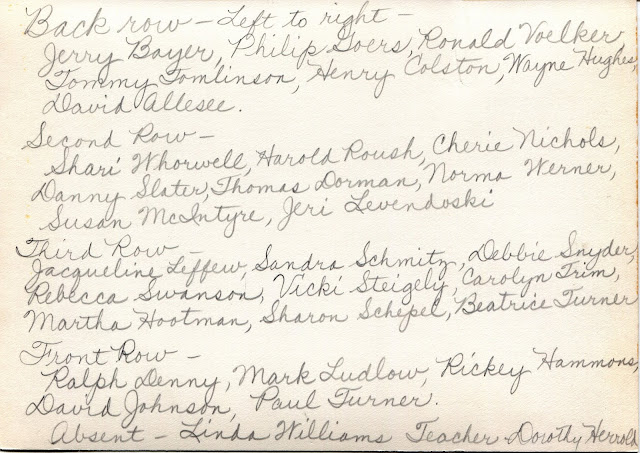 Back row - Left to right -
Jerry Bayer, Philip Goers, Ronald Voelker
Tommy Tomlinson, Henry Colston, Wayne Hughes,
David Allesee.
Second Row -
Shari Whorwell, Harold Roush, Cherie Nichols,
Danny Slater, Thomas Dorman, Norma Werner,
Susan McIntyre, Jeri Levendoski
Third Row -
Jacqueline Leffew, Sandra Schmitz, Debbie Snyder,
Rebecca Swanson, Vicki Steigely, Carolyn Trim,
Martha Hootman, Sharon Schepel, Beatrice Turner
Front Row -
Ralph Denny, Mark Ludlow, Rickey Hammons,
David Johnson, Paul Turner.
Absent - Linda Williams Teacher - Dorothy Herrold